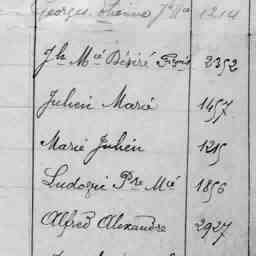 Georges Etienne Jh Mie 1214
Jh Mié Désiré Frçois 2352
Julien Marié 1457
Marié Julien 1215
Ludovic Pre Mié 1856
Alfred Alexandre 2927